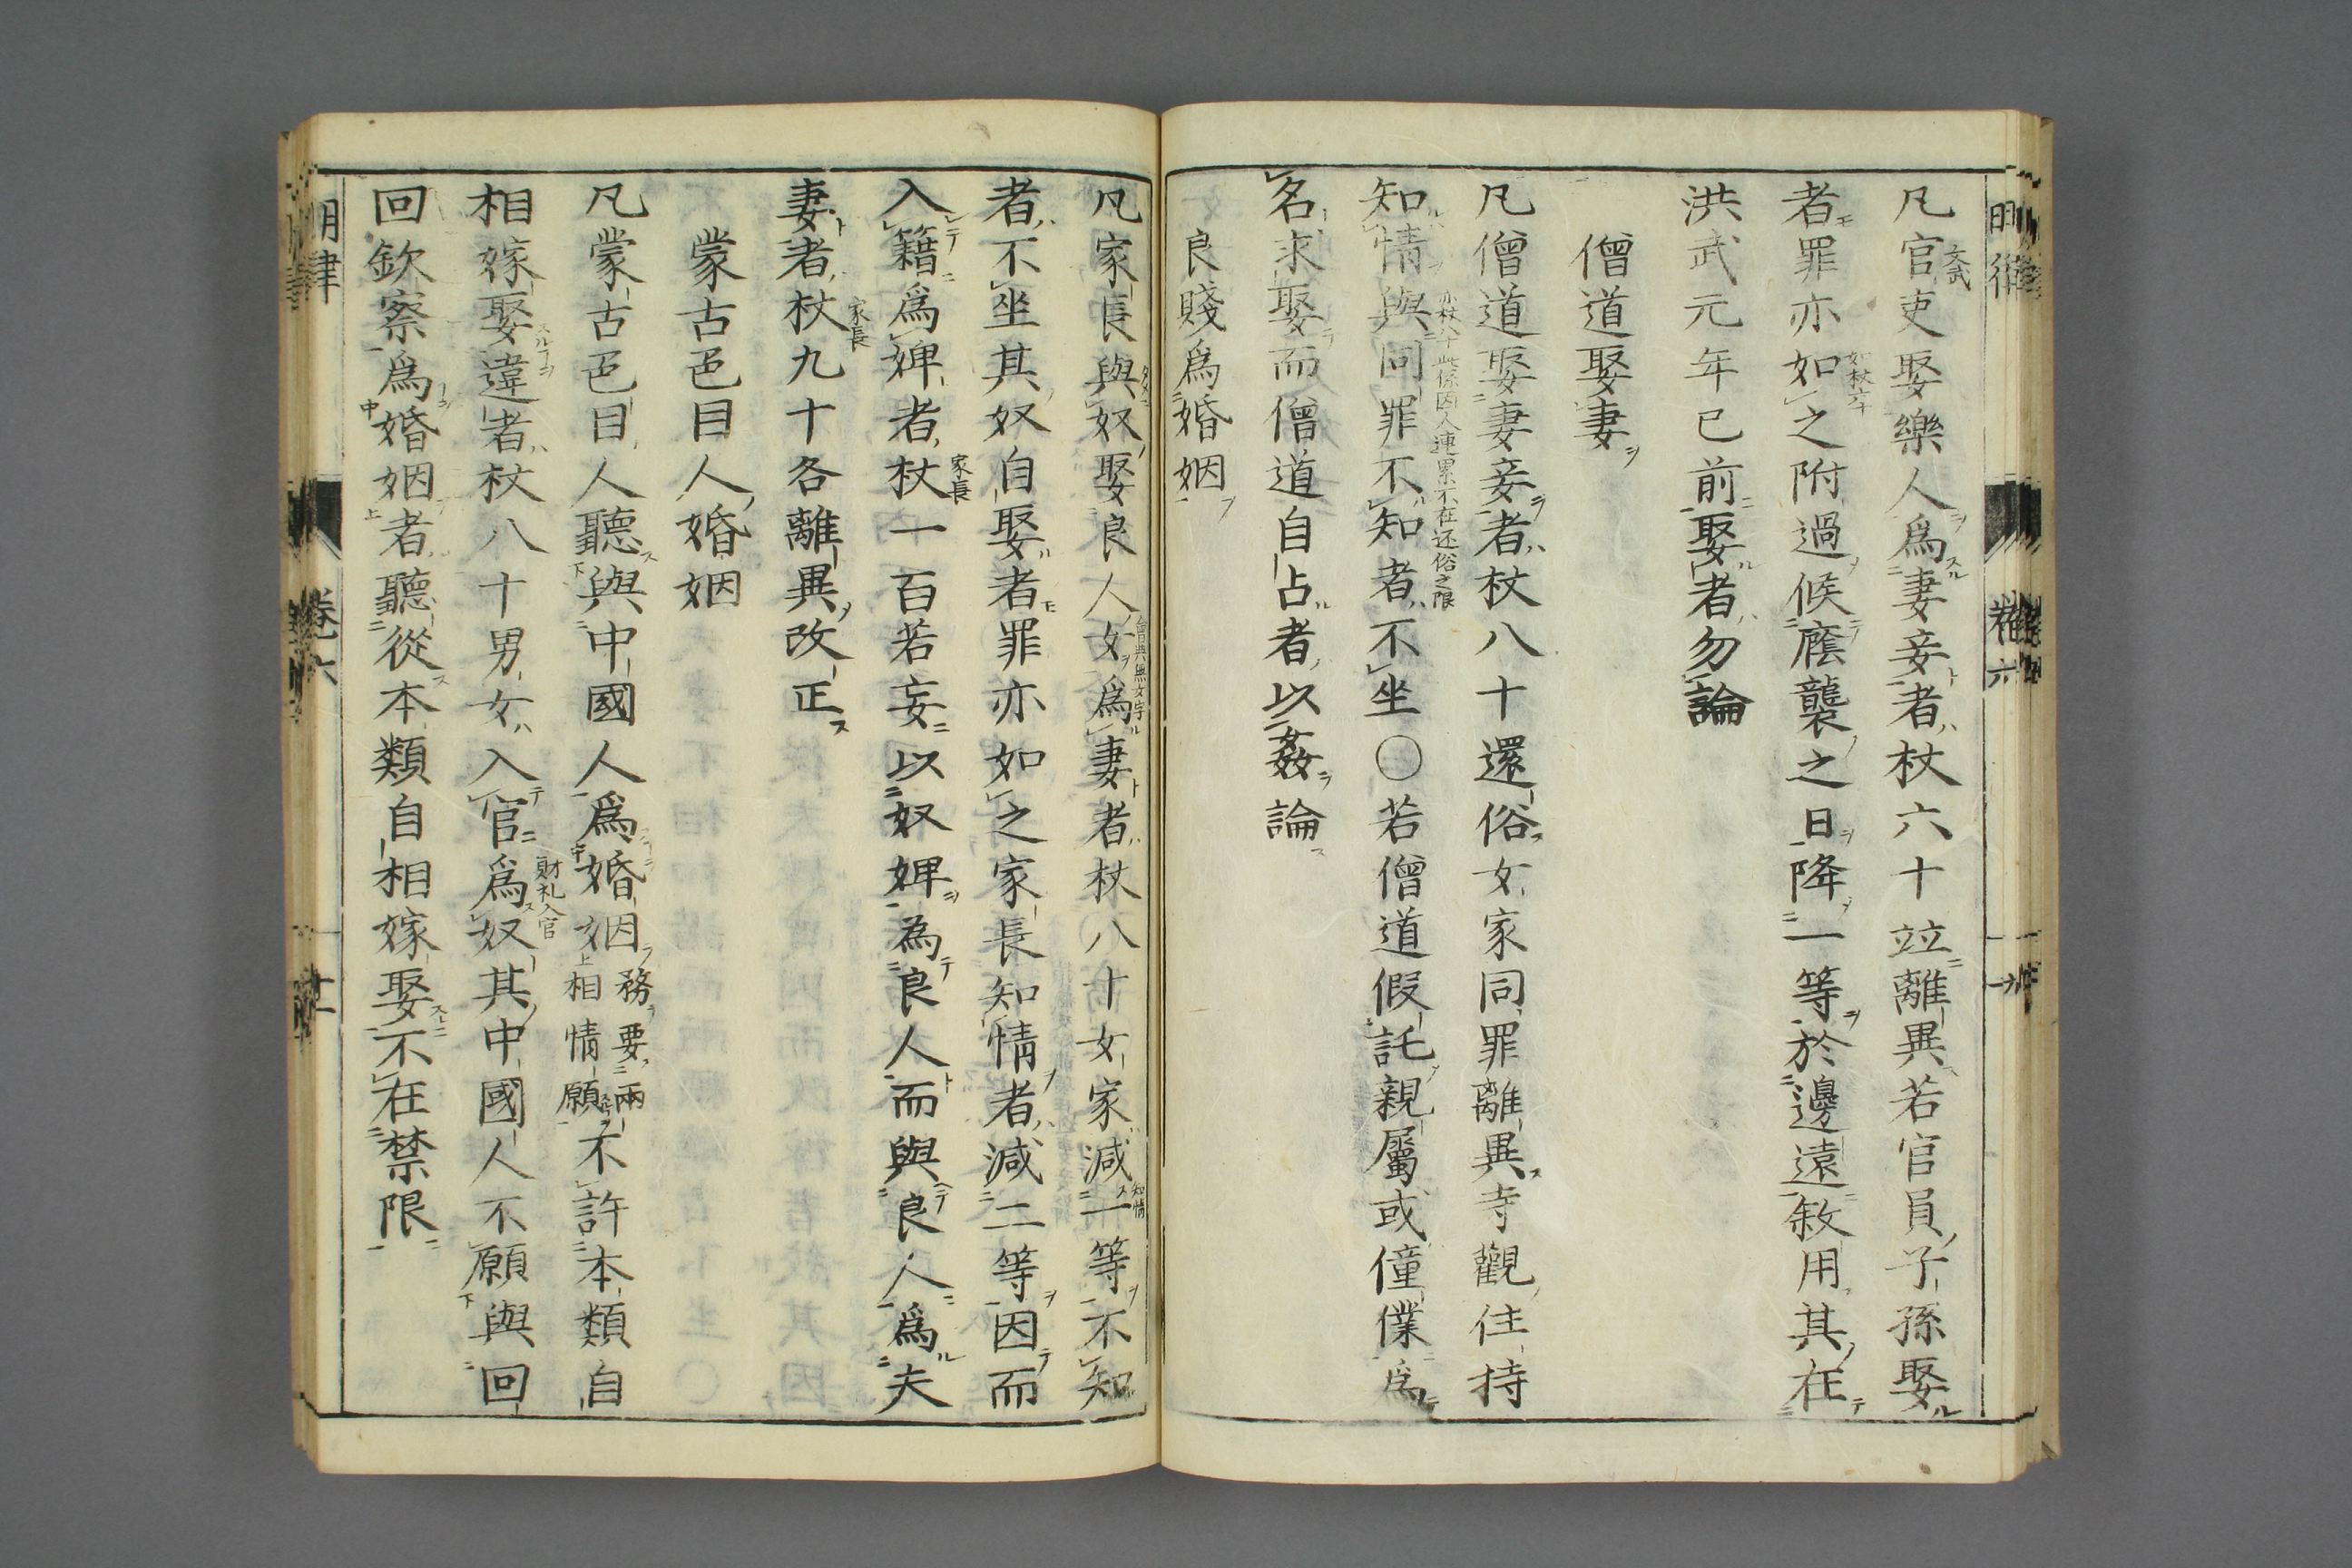 凡官吏娶樂人爲妻妾者杖六十竝離異若官員子孫娶
文武
者罪亦如之附過候廕襲之日降一等於邊遠敘用其在
如杖六十
洪武元年已前娶者勿論
僧道娶妻
凡僧道娶妻妾者杖八十還俗女家同罪離異寺觀住持
知情與同罪不知者不坐〇若僧道假託親屬或僮僕爲
亦杖八十此係因人連累不在还俗之限
名求娶而僧道自占者以姦論
良賤爲婚姻
凡家長與奴娶良人女爲妻者杖八十女家減一等不知
會典無女字
知情
者不坐其奴自娶者罪亦如之家長知情者減二等因而
入籍爲婢者杖一百若妄以奴婢為良人而與良人爲夫
家長
妻者杖九十各離異改正
家長
蒙古色目人婚姻
凡蒙古色目人聽與中國人爲婚姻務要兩相情願不許本類自
相嫁娶違者杖八十男女入官爲奴其中國人不願與回
財礼入官
回欽察爲婚姻者聽從本類自相嫁娶不在禁限
明律
卷六
十一